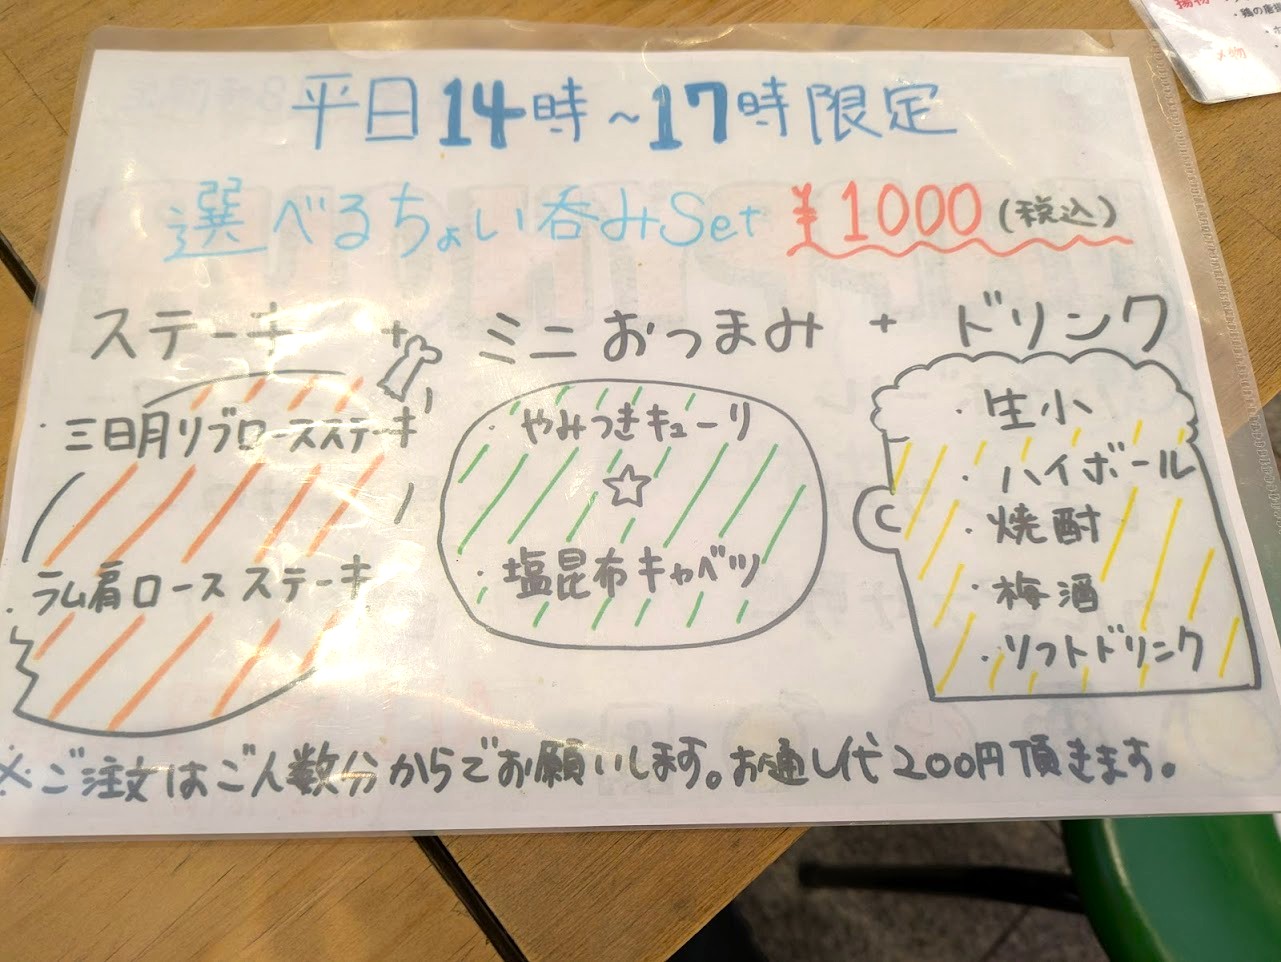 平日14時~17時限定
選べるちょい呑みSet ¥1000(税込)
ステーキ + ミニおつまみ + ドリンク
・三日月リブロースステーキ
・ラム肩ロースステーキ
・やみつきキューリ
☆
・塩昆布キャベツ
・生小
・ハイボール
・焼酎
・梅酒
・ソフトドリンク
※ご注文はご人数分からでお願いします。お通し代200円頂きます。
揚物
〆物